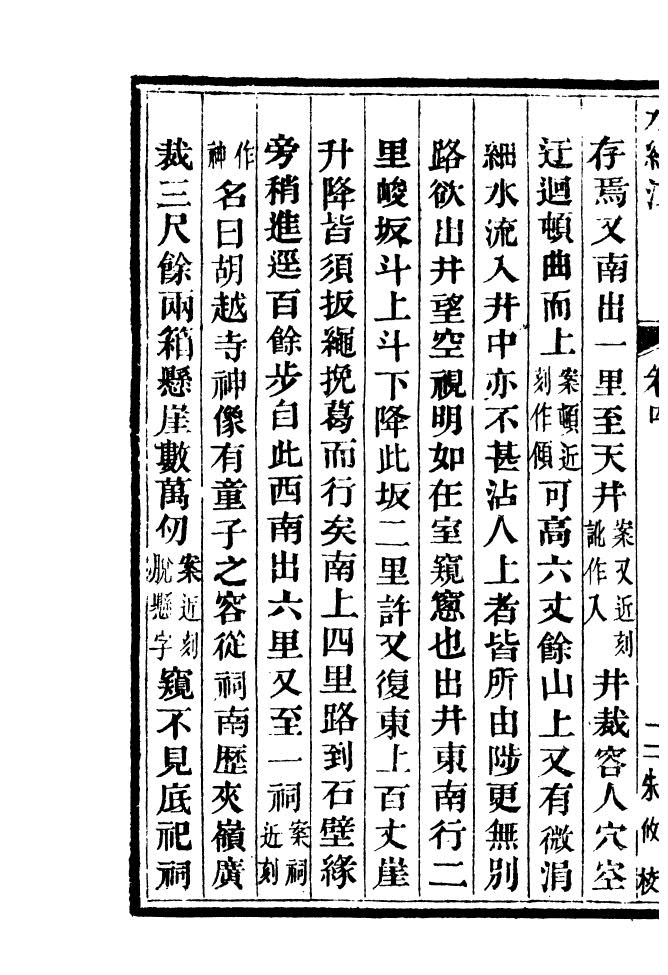 水經注 卷四 二 朱攸校
存焉又南出一里至天井案又近刻訛作入井裁容人穴空
迂迴頓曲而上案頓近刻作傾可高六丈餘山上又有微涓
細水流入井中亦不甚沾人上者皆所由陟更無別
路欲出井望空視明如在室窺窻也出井東南行二
里峻坂斗上斗下降此坂二里許又復東上百丈崖
升降皆須扳繩挽葛而行矣南上四里路到石壁緣
旁稍進逕百餘步自此西南出六里又至一祠案祠近刻
作神名曰胡越寺神像有童子之容從祠南歷夾嶺廣
裁三尺餘兩箱懸崖數萬仞案近刻脫懸字窺不見底祀祠